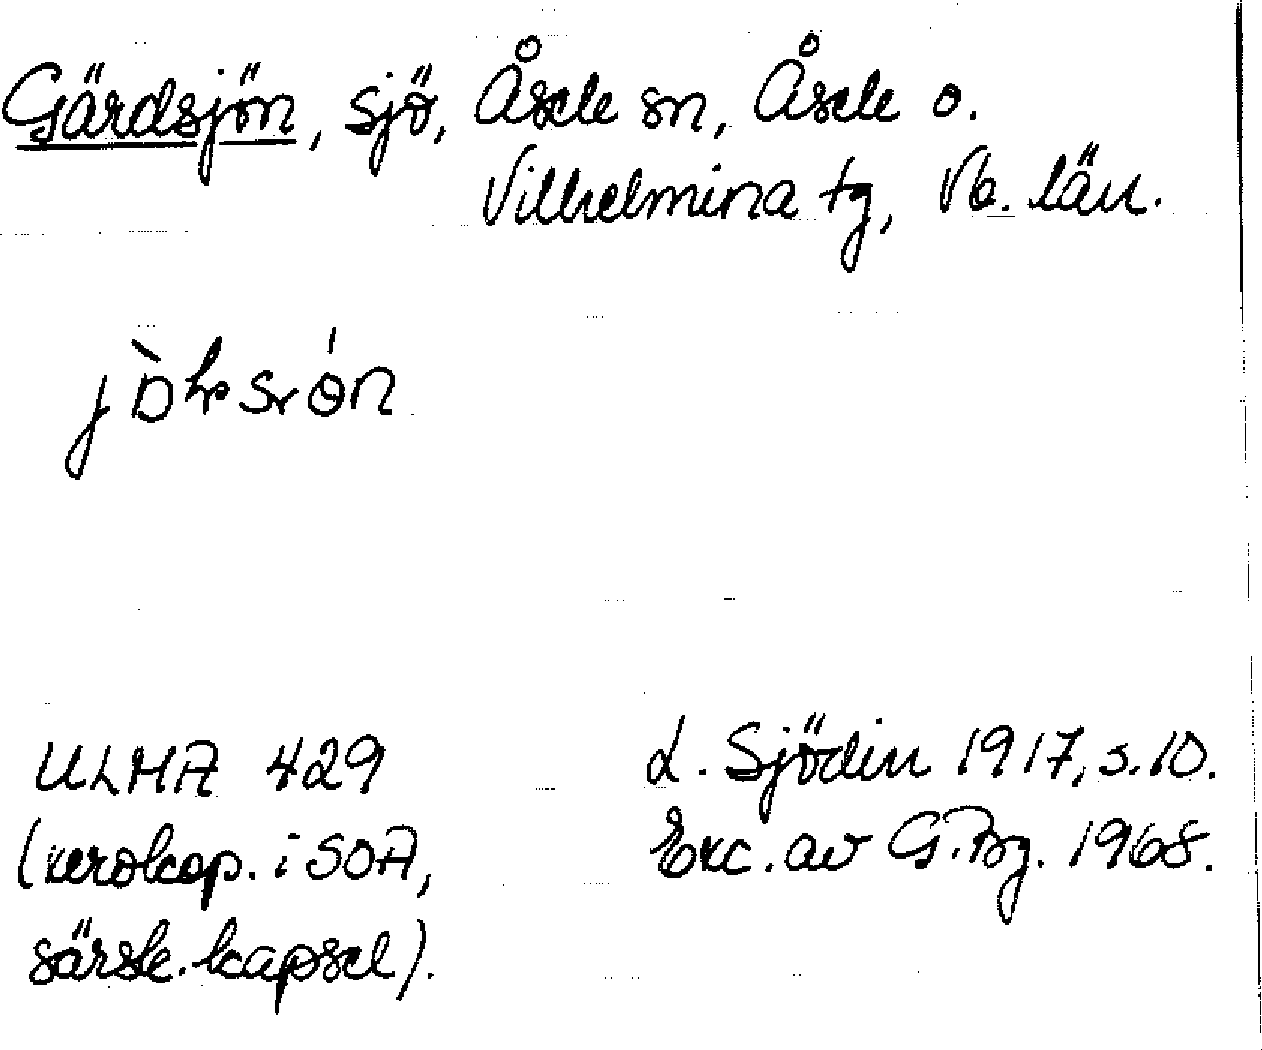 Gärdsjön, sjö, Åsele sn, Åsele o.
Vilhelmina tg, Vb. län.
ULMA 429
(xerokop. i SOA,
särsk. kapsel).
L. Sjödin 1917, s. 10.
Exc. av G. Bg. 1968.